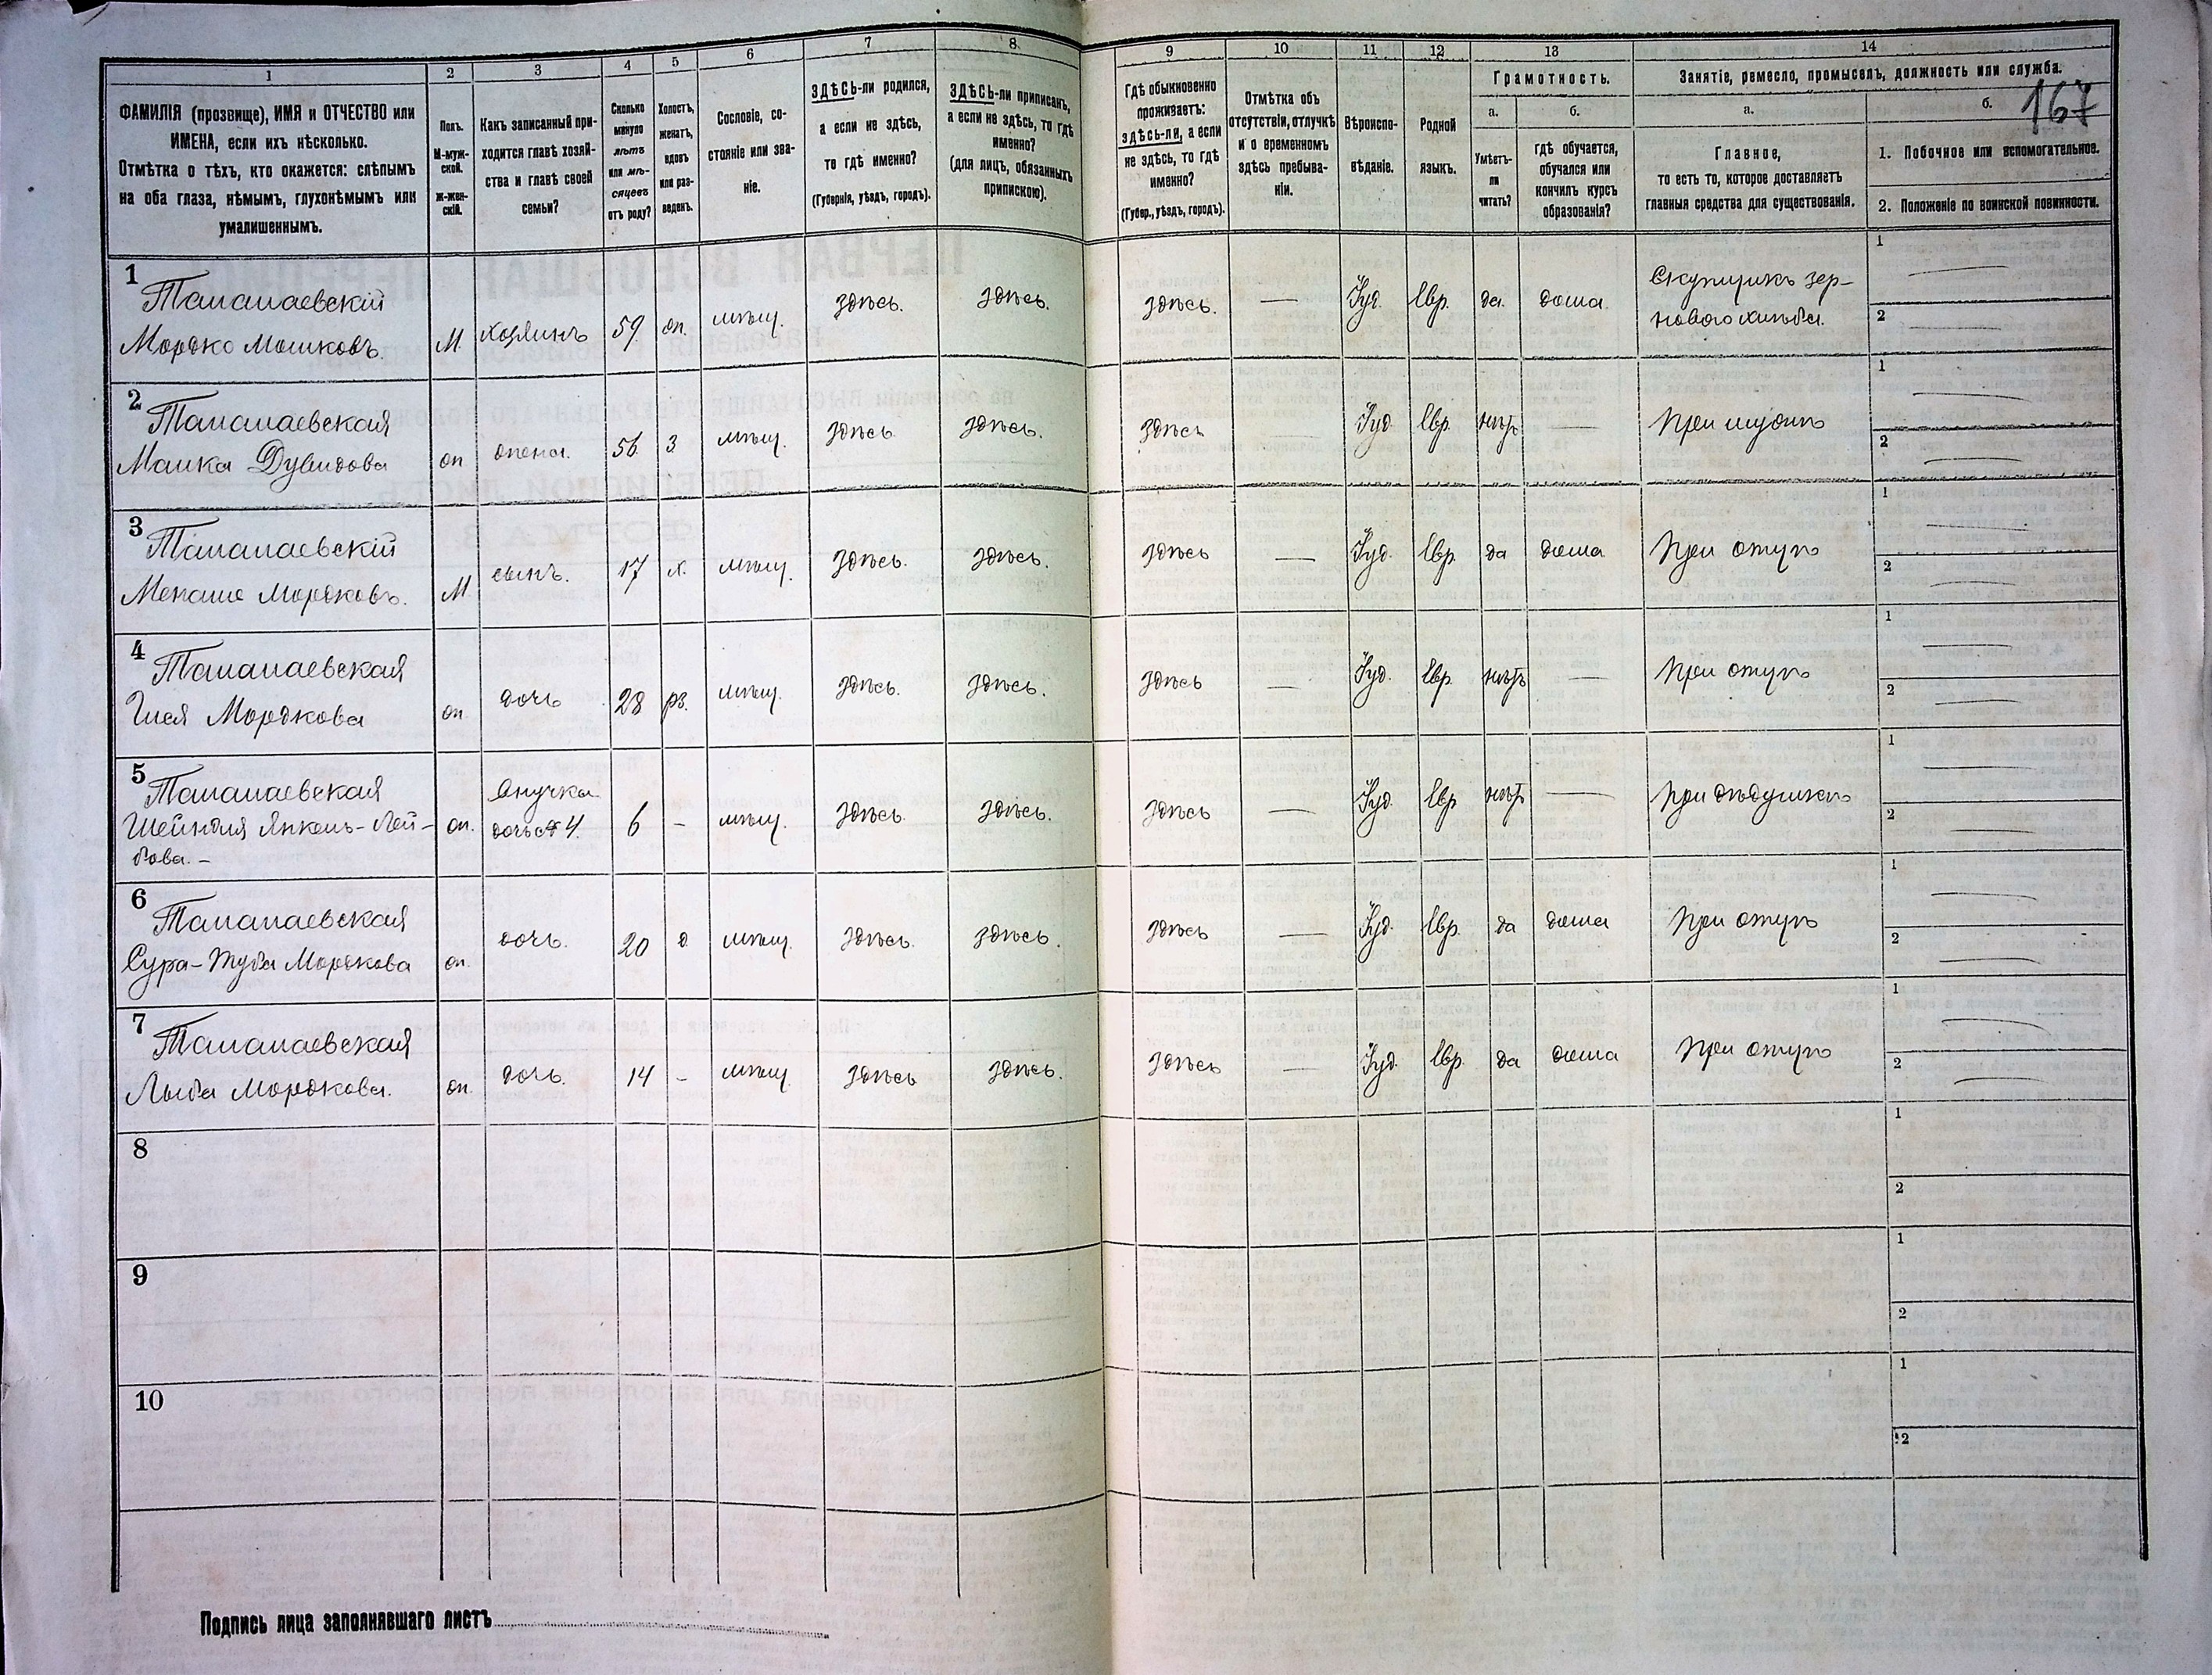 1 2 3 4 5 6 7 8 9 10 11 12 13 14
167
ФАМИЛІЯ (прозвище), ИМЯ и ОТЧЕСТВО или
ИМЕНА, если ихъ нѣсколько.
Отмѣтка о тѣхъ, кто окажется: слѣпымъ
на оба глаза, нѣмымъ, глухонѣмымъ или
умалишеннымъ.
Полъ.
М-муж-
ской.
ж-жен-
скій.
Какъ записанный при-
ходится главѣ хозяй-
ства и главѣ своей
семьи?
Сколько
минуло
лѣтъ
или мѣ-
сяцевъ
отъ роду?
Холостъ,
женатъ,
вдовъ
или раз-
веденъ.
Сословіе, со-
стояніе или зва-
ніе.
ЗДѢСЬ-ли родился,
а если не здѣсь,
то гдѣ именно?
(Губернія, уѣздъ, городъ).
ЗДѢСЬ-ли приписанъ,
а если не здѣсь, то гдѣ
именно?
(для лицъ, обязанныхъ
припискою).
Гдѣ обыкновенно
проживаетъ:
здѣсь-ли, а если
не здѣсь, то гдѣ
именно?
(Губер., уѣздъ, городъ).
Отмѣтка объ
отсутствіи, отлучкѣ
и о временномъ
здѣсь пребыва-
ніи.
Вѣроиспо-
вѣданіе.
Родной
языкъ.
Грамотность.
а. б.
Умѣетъ-
ли
читать?
гдѣ обучается,
обучался или
кончилъ курсъ
образованія?
Занятіе, ремесло, промыселъ, должность или служба.
а. б.
Главное,
то есть то, которое доставляетъ
главныя средства для существованія.
1. Побочное или вспомогательное.
2. Положеніе по воинской повинности.
1 Ташлаевскій
Мордко Мошковъ. М. хозяинъ 59 ж. мѣщ. здѣсь. здѣсь. здѣсь. — Іуд. Евр. да. дома. Скупщикъ зер-
нового хлѣба. 1 — 2 —
2 Ташлаевская
Дувидова ж жена. 56 з мѣщ. здѣсь здѣсь. здѣсь — Іуд Евр. нѣтъ — при мужѣ 1 — 2 —
3
Менаше Мордковъ. М сынъ. 17 х. мѣщ. здѣсь. здѣсь. здѣсь — Іуд. Евр. да дома при отцѣ 1 — 2 —
4
Мордкова ж дочь 28 рз. мѣщ. здѣсь. здѣсь. здѣсь — Іуд. Евр. нѣтъ — при отцѣ 1 — 2 —
5
Шейндля Янкель-Лей-
бова. — ж. внучка
дочь № 4. 6 – мѣщ. здѣсь. здѣсь. здѣсь — Іуд. Евр нѣтъ — при дѣдушкѣ 1 — 2 —
6
Сура-Туба Мордкова ж. дочь. 20 д мѣщ. здѣсь. здѣсь. здѣсь — Іуд. Евр. да дома при отцѣ 1 — 2 —
7
Мордкова. ж. дочь. 14 – мѣщ. здѣсь здѣсь. здѣсь — Іуд. Евр. да дома при отцѣ 1 — 2 —
8 1 2
9 1 2
10 1 2
Подпись лица заполнявшаго листъ